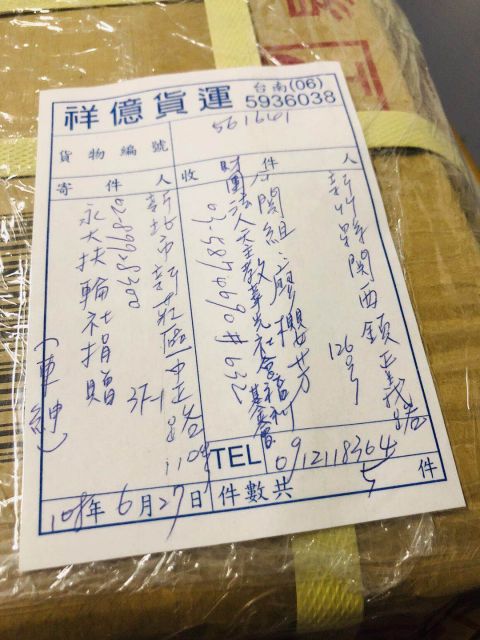 祥億貨運
台南(06)
5936038
561641
貨物編號
收件人
新竹縣關西鎮正義路
126號
公關組 廖櫻芳
財團法人天主教華光社會福利基金會
03-5874690#632
寄件人
新北市新莊區中正路
3F-1
02-89928300
永大扶輪社捐贈
TEL
0912118364
108年6月27日
件數共 5 件